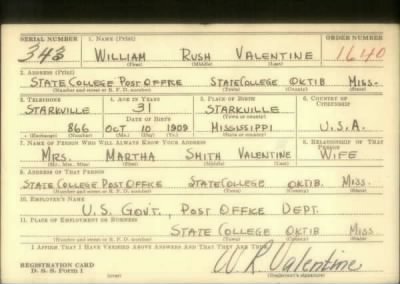 SERIAL NUMBER 1. NAME (Print) ORDER NUMBER
343 WILLIAM RUSH VALENTINE 1640
(First) (Middle) (Last)
2. ADDRESS (Print)
STATE COLLEGE POST OFFICE STATE COLLEGE OKTIB MISS.
(Number and street or R. F. D. number) (Town) (County) (State)
3. TELEPHONE 4. AGE IN YEARS 5. PLACE OF BIRTH 6. COUNTRY OF CITIZENSHIP
STARKVILLE 31 STARKVILLE
DATE OF BIRTH (Town or county)
866 OCT 10 1909 MISSISSIPPI U.S.A.
(Exchange) (Number) (Mo.) (Day) (Yr.) (State or country)
7. NAME OF PERSON WHO WILL ALWAYS KNOW YOUR ADDRESS 8. RELATIONSHIP OF THAT PERSON
MRS. MARTHA SMITH VALENTINE WIFE
(Mr., Mrs., Miss) (First) (Middle) (Last)
9. ADDRESS OF THAT PERSON
STATE COLLEGE POST OFFICE STATE COLLEGE OKTIB. MISS.
(Number and street or R. F. D. number) (Town) (County) (State)
10. EMPLOYER'S NAME
U.S. GOVT., POST OFFICE DEPT.
11. PLACE OF EMPLOYMENT OR BUSINESS
STATE COLLEGE OKTIB MISS
(Number and street or R. F. D. number) (Town) (County) (State)
I AFFIRM THAT I HAVE VERIFIED ABOVE ANSWERS AND THAT THEY ARE TRUE.
REGISTRATION CARD
D. S. S. Form 1 (over) W R Valentine
(Registrant's signature)